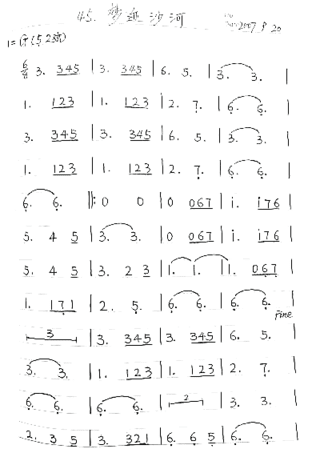 45. 梦 沙河
2007.9.20
1=G (5 2弦)
6/8 3. 345 | 3. 345 | 6. 5. | 3. 3. |
1. 123 | 1. 123 | 2. 7. | 6. 6. |
3. 345 | 3. 345 | 6. 5. | 3. 3. |
1. 123 | 1. 123 | 2. 7. | 6. 6. |
6. 6. ‖: 0 0 | 0 067 | i. i76 |
5. 4 5 | 3. 3. | 0 067 | i. i76 |
5. 4 5 | 3. 2 3 | 1. 1. | 1. 067 |
1. 171 | 2. 5. | 6. 6. | 6. 6. |
fine
3 | 3. 345 | 3. 345 | 6. 5. |
3. 3. | 1. 123 | 1. 123 | 2. 7. |
6. 6. | 6. 6. | 2 | 3. 3. |
2. 3 5 | 3. 321 | 6. 6 5 | 6. 6. |